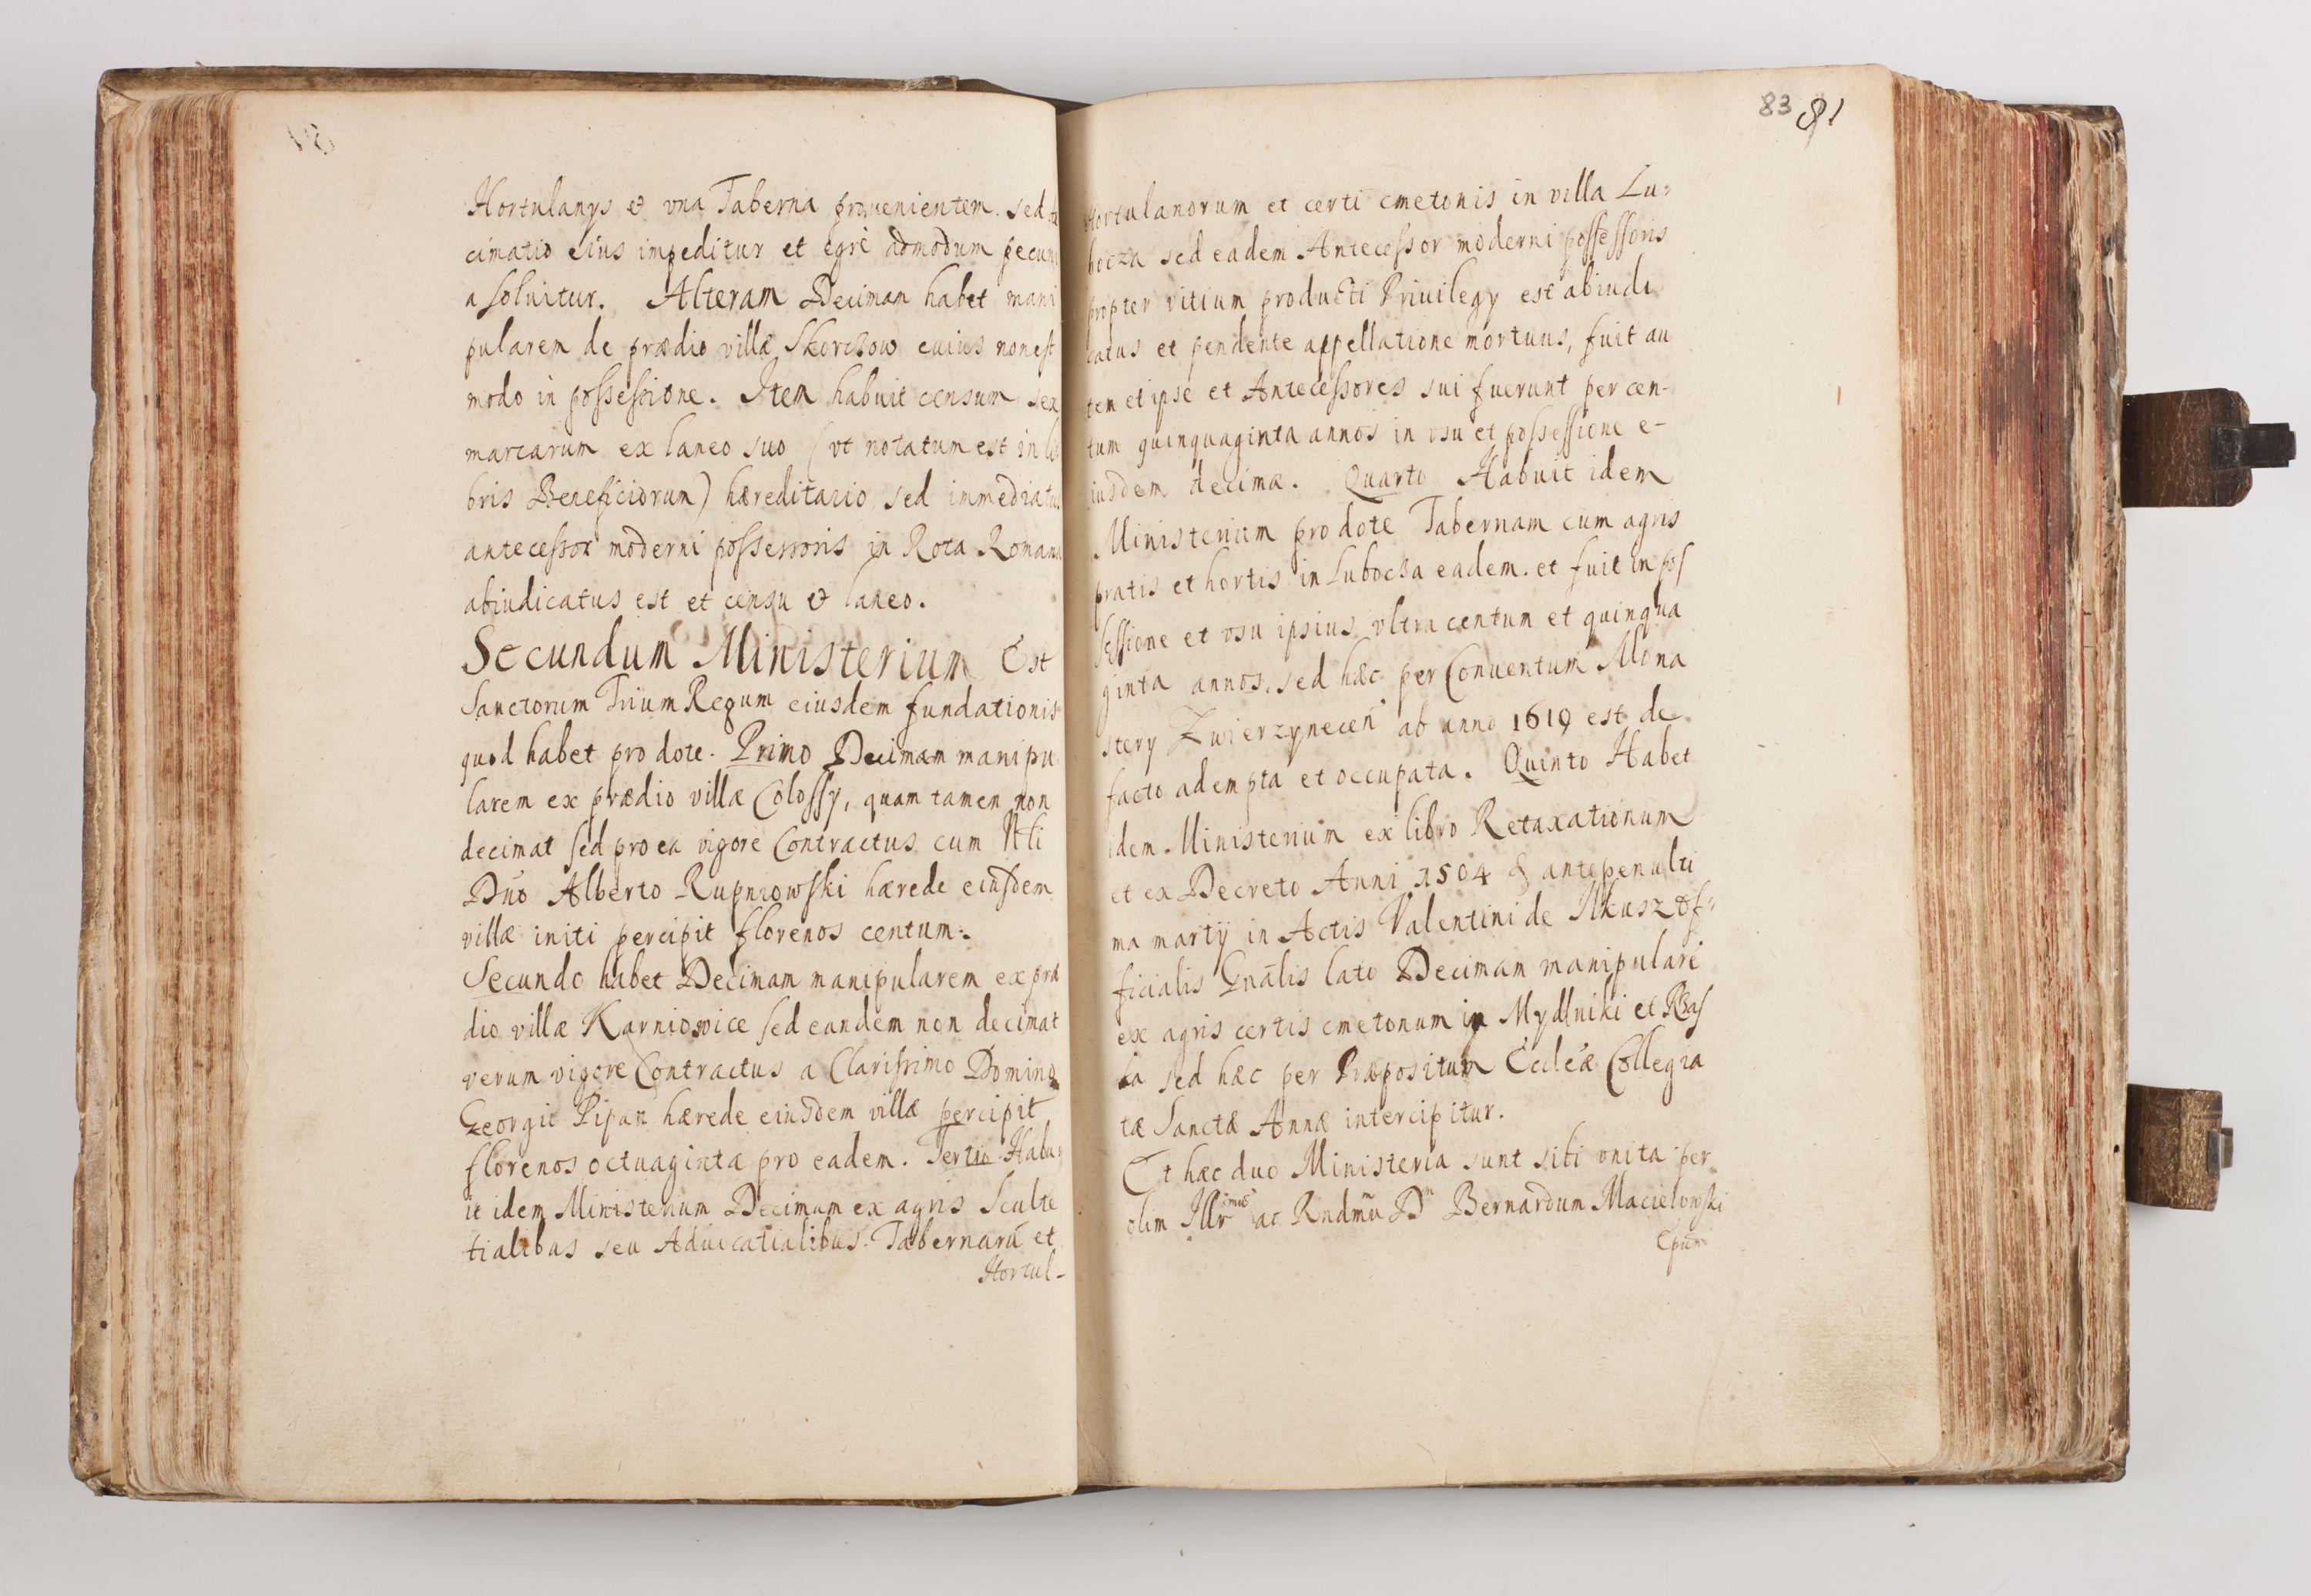 Hortulanys & vna Taberna prouenientem. sed de
cimatio eius impeditur et egrè admodum pecuni
a soluitur. Alteram Deciman habet mani
pularem de prædio villæ Skorczow cuius non est
modo in possessione. Item habuit censum sex
marcarum ex laneo suo (vt notatum est in li
bris Beneficiorum) hæreditario, sed immediatus
antecessor moderni possessoris in Rota Romana
abiudicatus est et censu & laneo.
Secundum Ministerium Est
Sanctorum Trium Regum eiusdem fundationis
quod habet pro dote. Primo Decimam manipu
larem ex prædio villæ Colossy, quam tamen non
decimat sed pro ea vigore Contractus cum
Dño Alberto Rupniowski hærede eiusdem
villæ initi percipit florenos centum.
Secundo habet Decimam manipularem ex præ
dio villæ Karniowice sed eandem non decimat
verum vigore Contractus a Clarissimo Domino
Georgio Pipan hærede eiusdem villæ percipit
florenos octuaginta pro eadem. Tertio Habu-
it idem Ministerium Decimam ex agris Sculte
tialibus seu Aduocatialibus. Tabernarū et
Hortul-
83 81
Hortulanorum et certi cmetonis in villa Lu-
bocza sed eadem Antecessor moderni possessoris
propter vitium producti Priuilegy est abiudi
catus et pendente appellatione mortuus, fuit au
tem et ipse et Antecessores sui fuerunt per cen-
tum quinquaginta annos in vsu et possessione e-
iusdem decimæ. Quarto Habuit idem
Ministerium pro dote Tabernam cum agris
pratis et hortis in Lubocza eadem. et fuit in pos
sessione et vsu ipsius vltra centum et quinqua
ginta annos, sed hæc per Conuentum Mona
stery Zwierzynecen ab anno 1619 est de
facto adempta et occupata. Quinto Habet
idem Ministerium ex libro Retaxationum
et ex Decreto Anni 1504 & antepenulti
ma martij in Actis Valentini de Ilkusz of-
ficialis Gnalis lato Decimam manipularē
ex agris certis cmetonum in Mydlniki et Rzas
ka sed hæc per Præpositum Eccleæ Collegia
tæ Sanctæ Annæ intercipitur.
Et hæc duo Ministeria sunt sibi vnita per
olim Illr̄imus ac Rndmū Dn Bernardum Macieiowski
Epūm